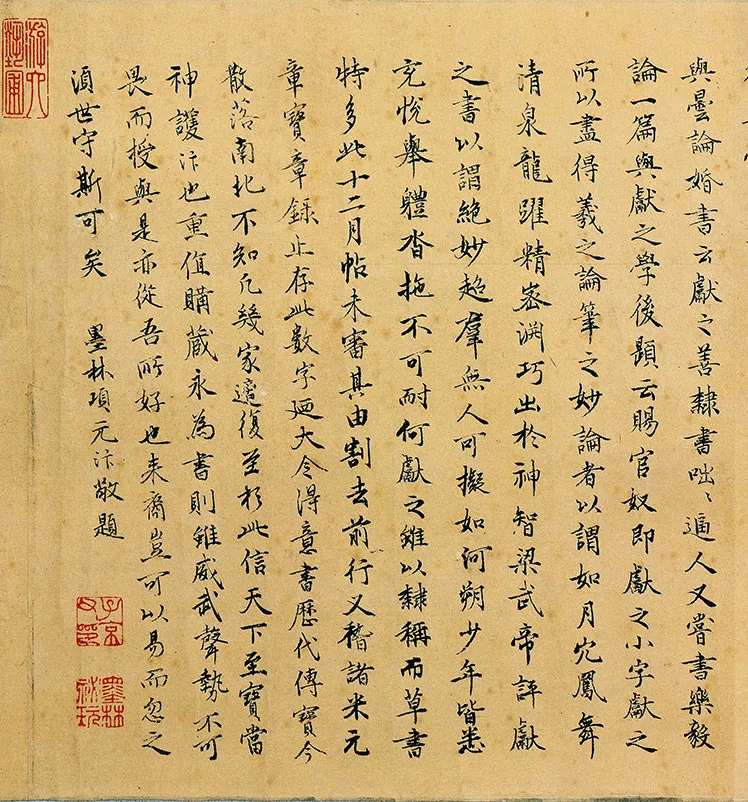 與曇論婚書云獻之善隸書咄〻逼人又嘗書樂毅
論一篇與獻之學後題云賜官奴即獻之小字獻之
所以盡得羲之論筆之妙論者以謂如月穴鳳舞
清泉龍躍精密淵巧出於神智梁武帝評獻
之書以謂絕妙超羣無人可擬如河朔少年皆悉
充悅舉軆沓拖不可耐何獻之雖以隸稱而草書
特多此十二月帖未審其由割去前行又稽諸米元
章寶章錄止存此數字廼大令得意書歷代傳寶今
散落南北不知凡幾家邅復至於此信天下至寶當
神護汴也重值購藏永為書則雖威武聲勢不可
畏而授與是亦從吾所好也来裔豈可以易而忽之
湏世守斯可矣 墨林項元汴敬題
子京父印
墨林祕玩